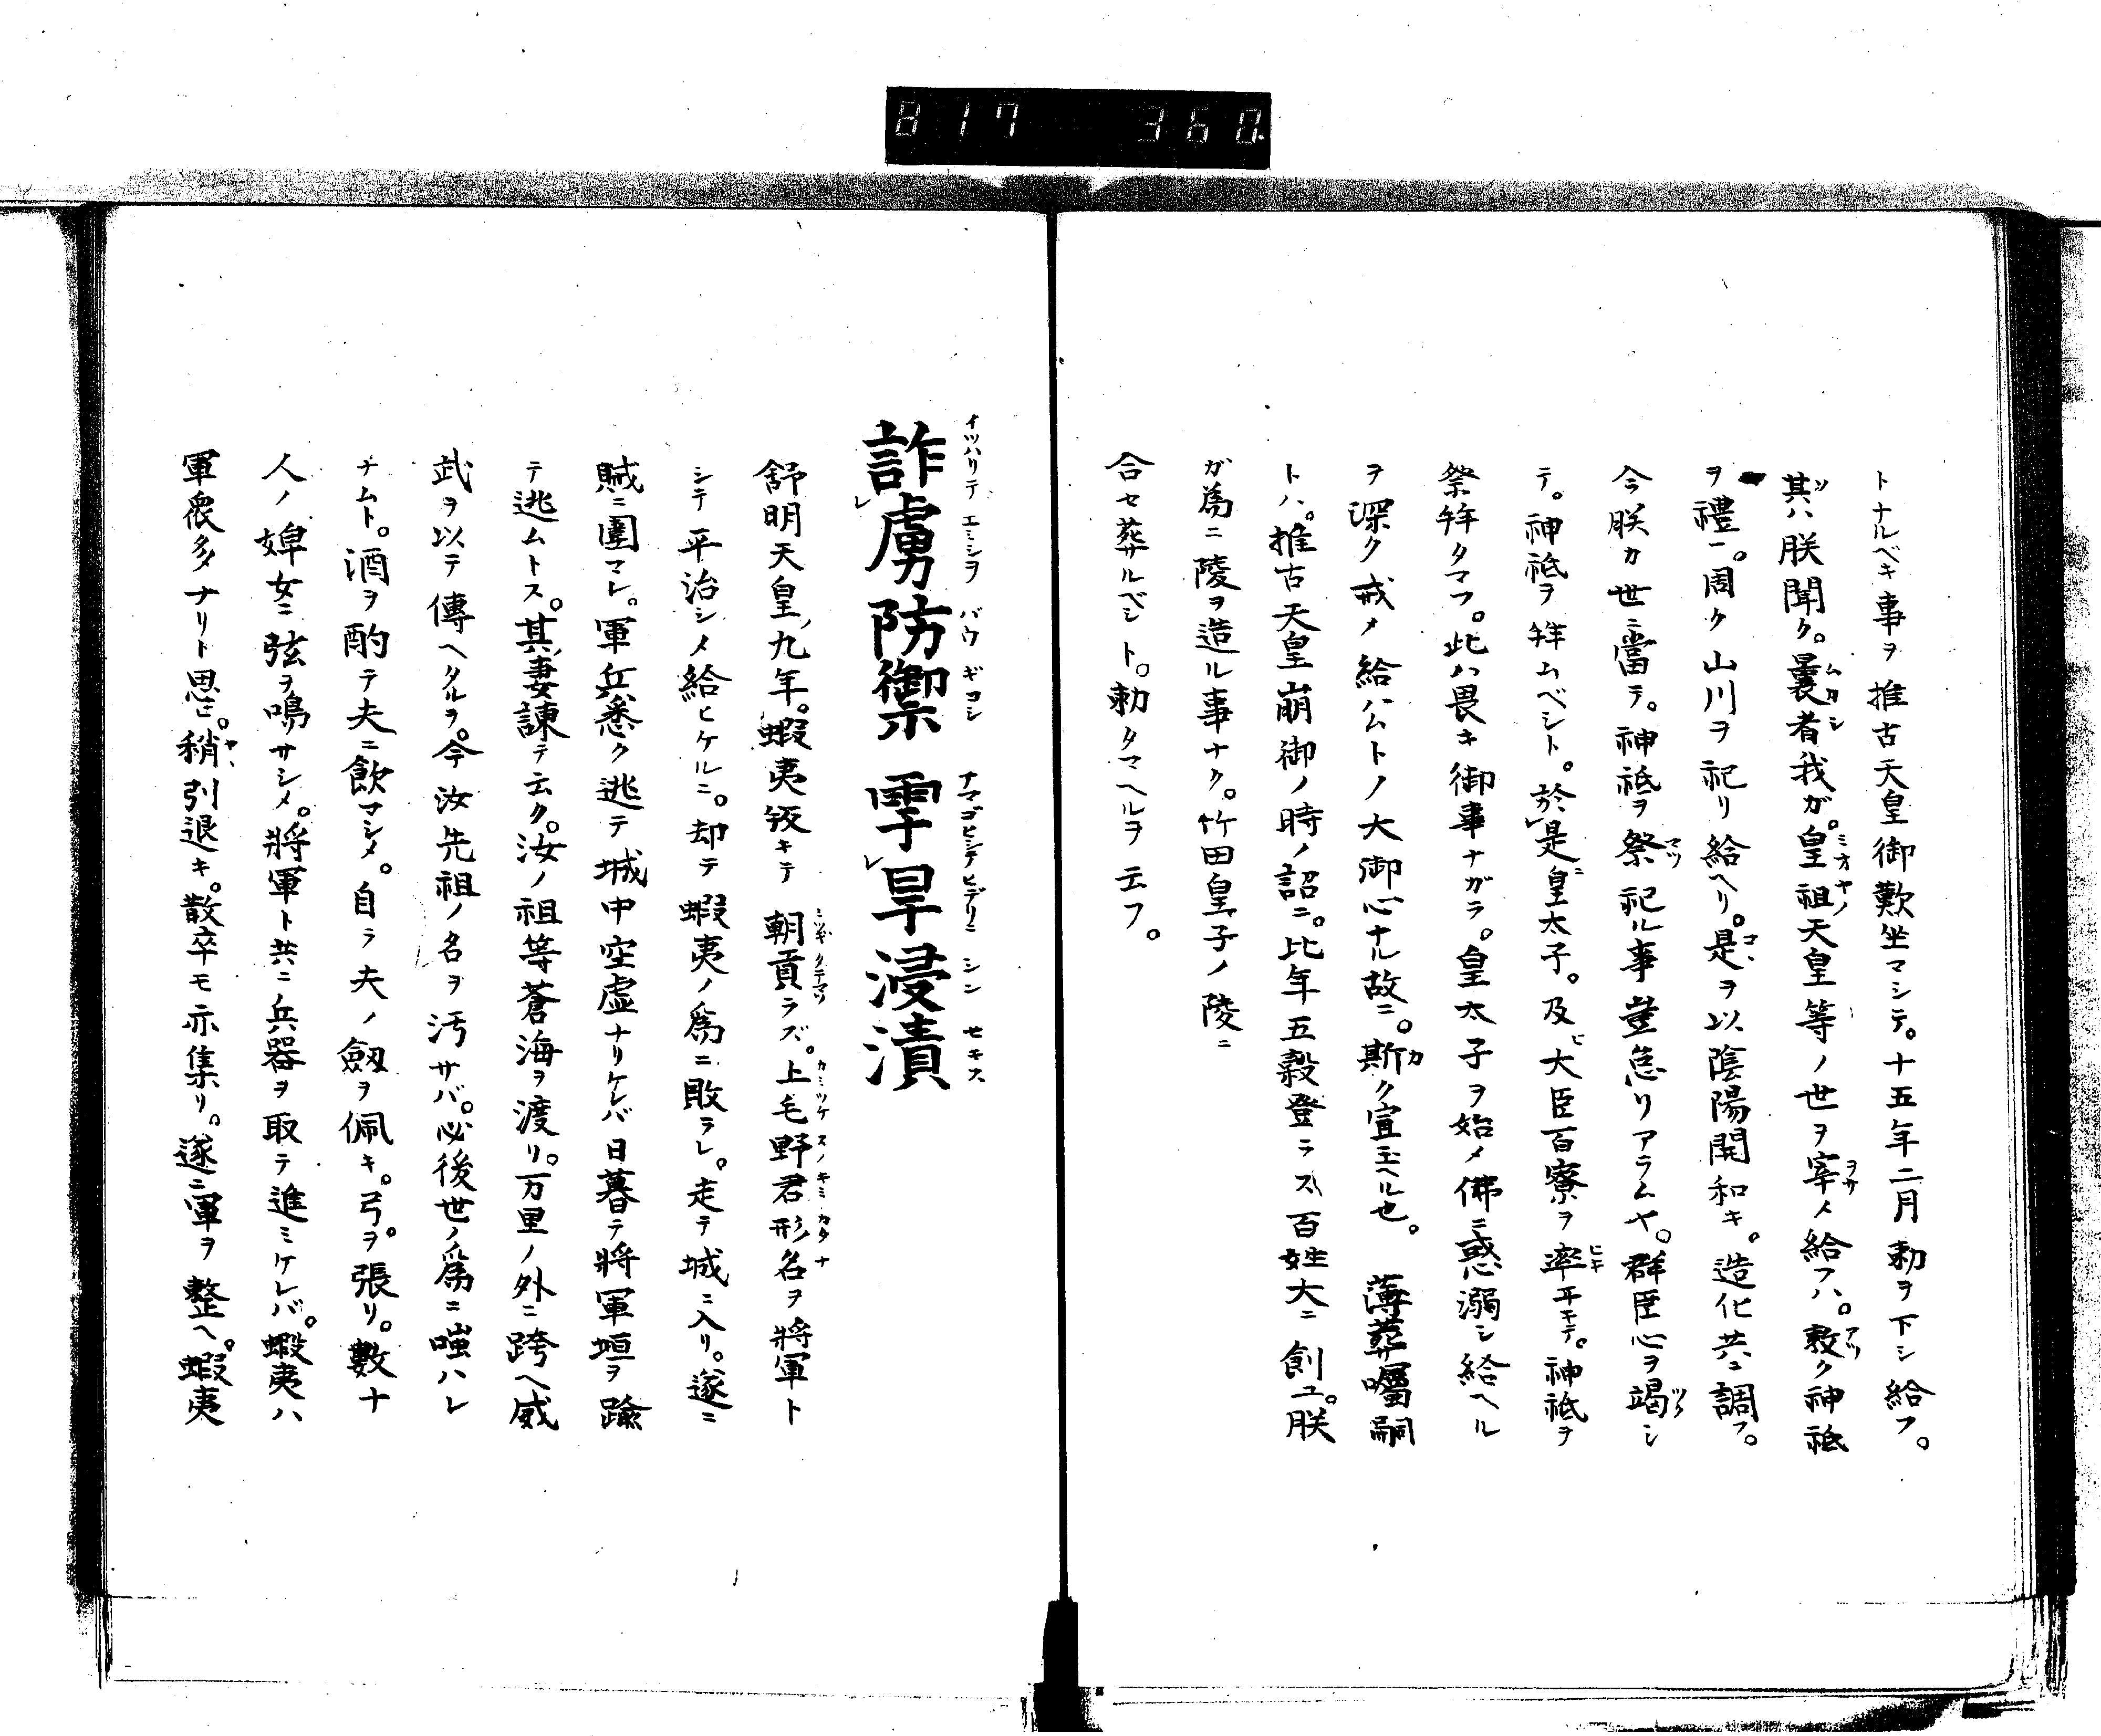 817 360
トナルベキ事ヲ推古天皇御歎坐マシテ。十五年二月勅ヲ下シ給フ。
其ハ朕聞ク。曩者我ガ。皇祖天皇等ノ世ヲ宰メ給フハ。敷ク神祇
ヲ禮一。周ク山川ヲ祀リ給ヘリ。是ヲ以陰陽開和キ。造化共ニ調フ。
今朕カ世ニ當テ。神祇ヲ祭祀ル事豈怠リアラムヤ。群臣心ヲ竭シ
テ。神祇ヲ拜ムベシト。於是皇太子。及ヒ大臣百寮ヲ率テ。神祇ヲ
祭拜タマフ。此ハ畏キ御事ナガラ。皇太子ヲ始メ佛ニ惑溺シ給ヘル
ヲ深ク戒メ給ハムトノ大御心ナル故ニ。斯ク宣玉ヘル也。 薄葬囑嗣
トハ。推古天皇崩御ノ時ノ詔ニ。比年五穀登ラス百姓大ニ創ユ。朕
ガ爲ニ陵ヲ造ル事ナク。竹田皇子ノ陵ニ
合セ葬サルベシト。勅タマヘルヲ云フ。
詐虜防禦 雩旱浸漬
イツハリテ エミシヲ バウ ギヨシ アマゴヒシテヒデリニ シン セキス
舒明天皇ノ九年。蝦夷叛キテ 朝貢ラズ。上毛野君形名ヲ將軍ト
シテ平治シメ給ヒケルニ。却テ蝦夷ノ爲ニ敗ラレ。走テ城ニ入リ。遂ニ
賊ニ圍マレ。軍兵悉ク逃テ城中空虚ナリケレバ日暮テ將軍垣ヲ踰
テ逃ムトス。其妻諫テ云ク。汝ノ祖等蒼海ヲ渡リ。万里ノ外ニ跨ヘ威
武ヲ以テ傳ヘタルヲ。今汝先祖ノ名ヲ汚サバ。必後世ノ爲ニ嗤ハレ
ナムト。酒ヲ酌テ夫ニ飲マシメ。自ラ夫ノ劔ヲ佩キ。弓ヲ張リ。數十
人ノ婢女ニ弦ヲ鳴サシメ。將軍ト共ニ兵器ヲ取テ進ミケレバ。蝦夷ハ
軍衆多ナリト思ヒ。稍引退キ。散卒モ亦集リ。遂ニ軍ヲ整ヘ。蝦夷